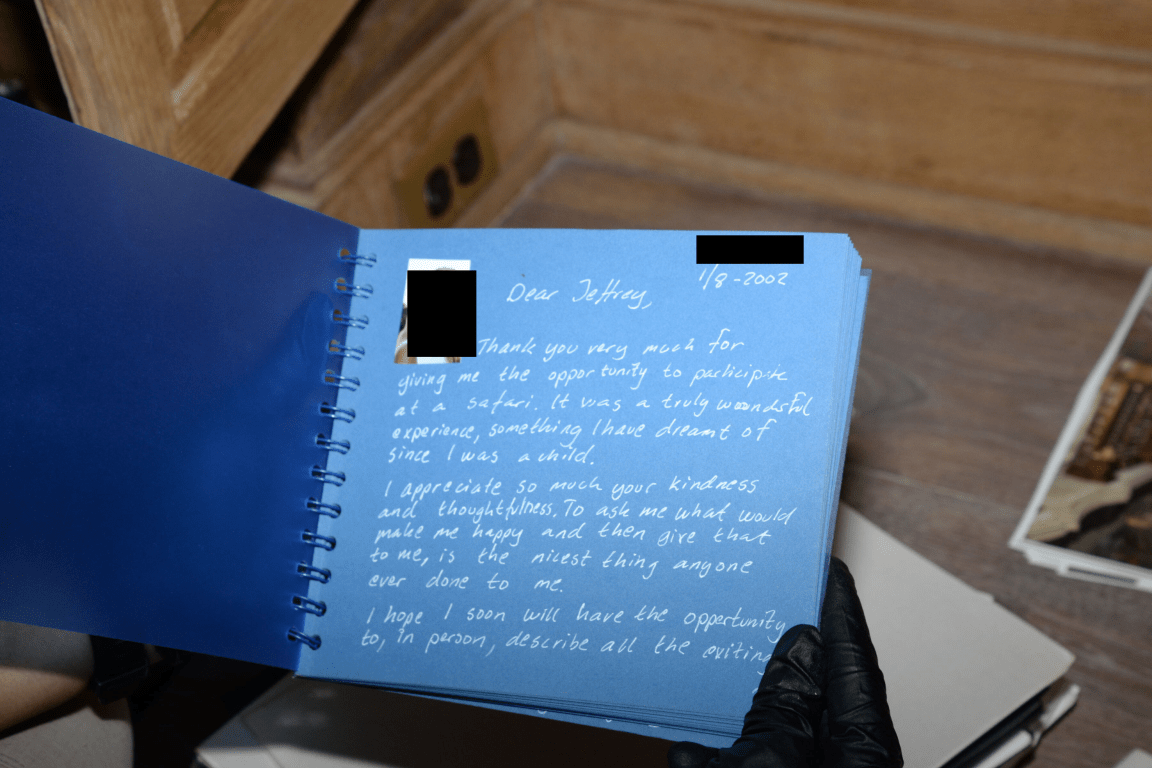 1/8-2002
Dear Jeffrey,
Thank you very much for
giving me the opportunity to participate
at a safari. It was a truly woondsful
experience, something I have dreamt of
since I was a child.
I appreciate so much your kindness
and thoughtfulness. To ask me what would
make me happy and then give that
to me, is the nicest thing anyone
ever done to me.
I hope I soon will have the opportunity
to, in person, describe all the exiting